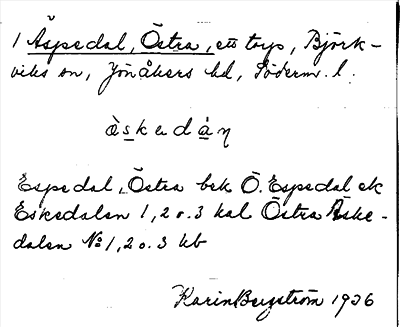 1 Äspedal, Östra, ett torp, Björk-
viks sn, Jönåkers hd, Söderm. l.
äskɐdán
Espedal, Östra bek Ö. Espedal ek
Eskedalen 1, 2 o. 3 kal Östra Äske-
dalen № 1, 2 o. 3 kb
Karin Bergström 1936